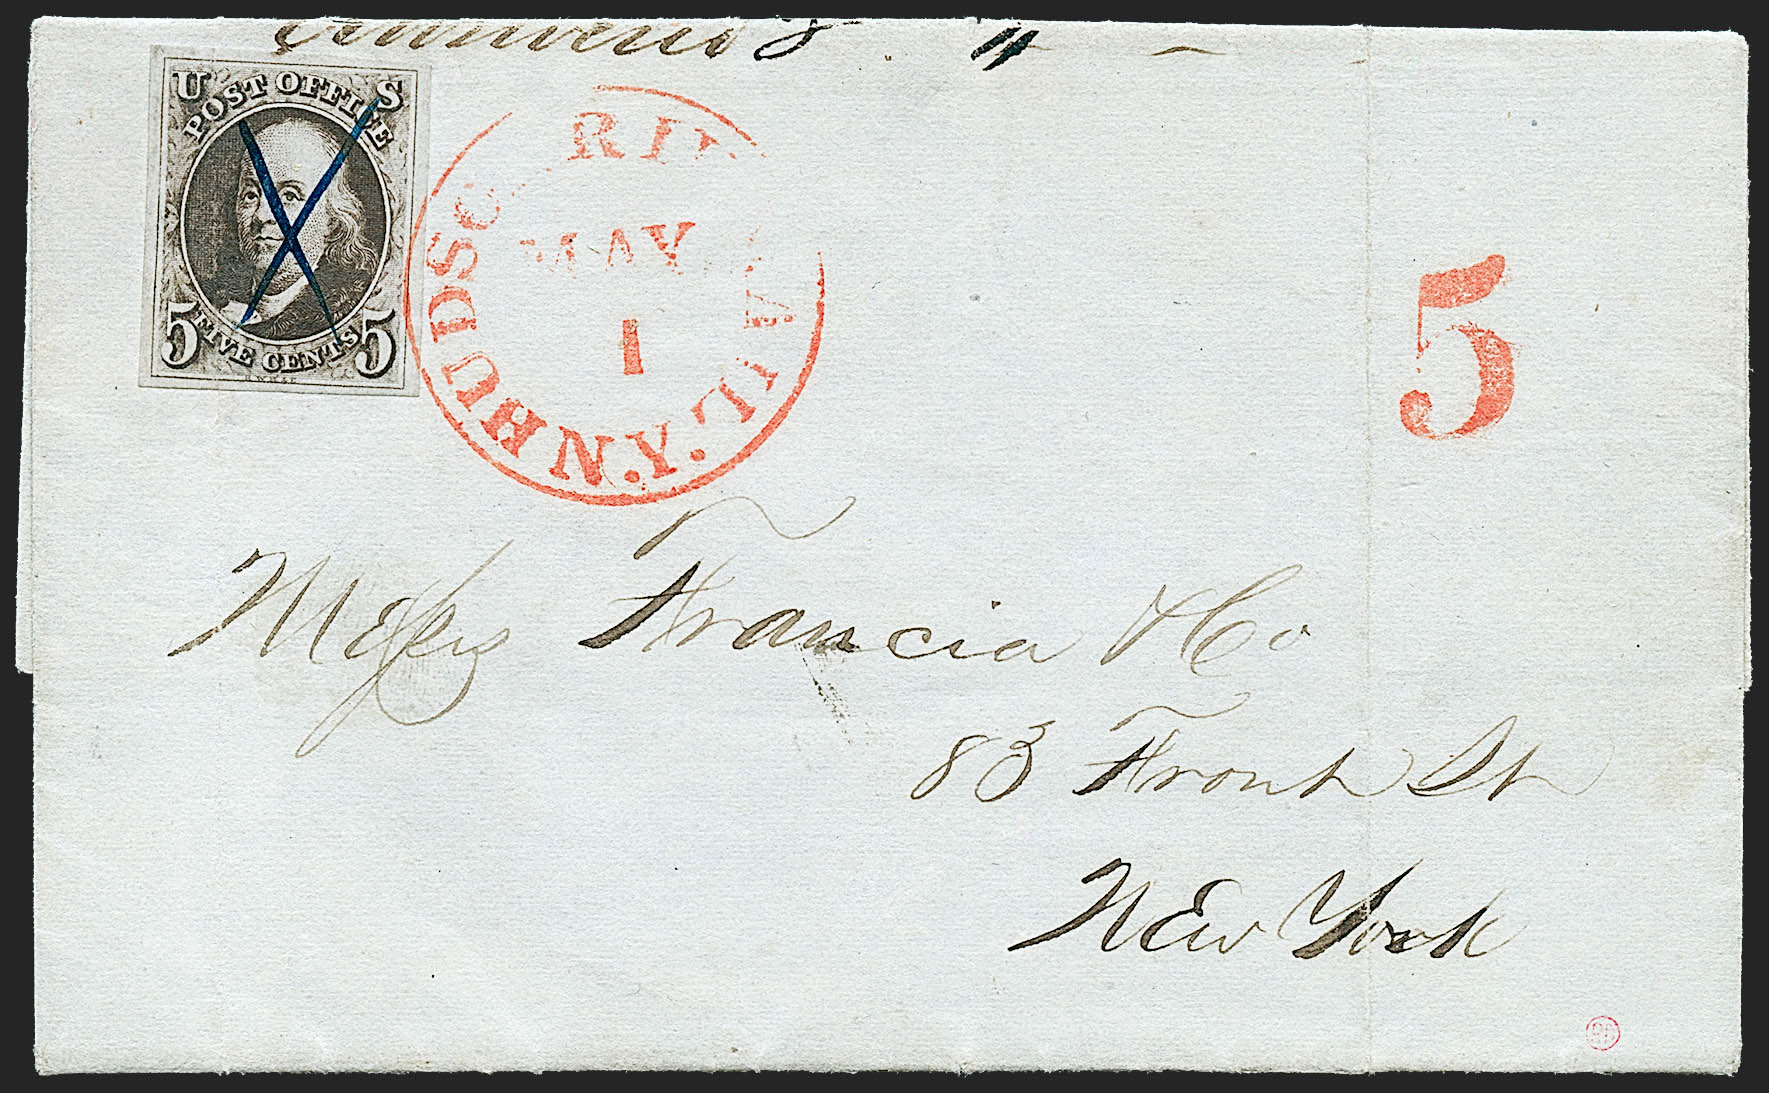 U S
POST OFFICE
5 FIVE CENTS 5
HUDSO RIV MAIL N.Y.
MAY
1
5
Messrs Francia & Co
83 Front St
New York